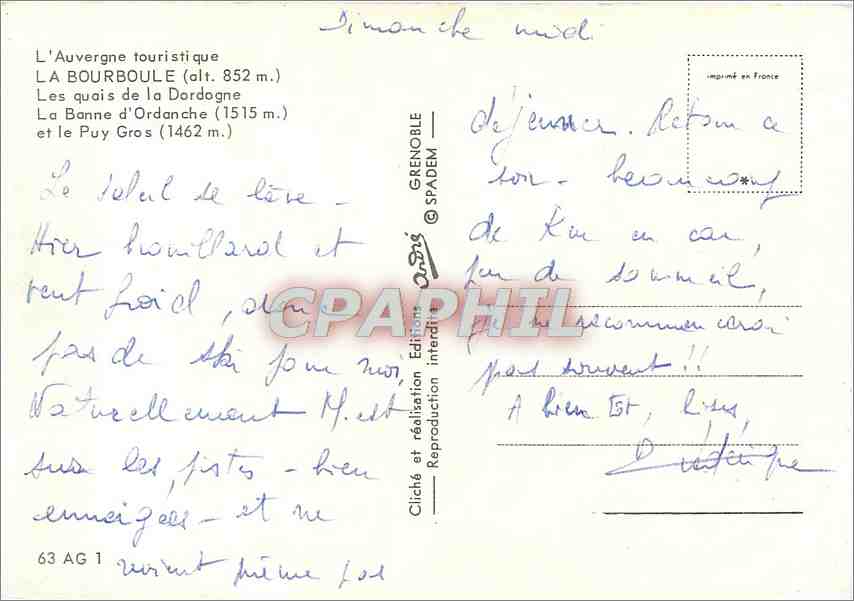 Dimanche midi
L'Auvergne touristique
LA BOURBOULE (alt. 852 m.)
Les quais de la Dordogne
La Banne d'Ordanche (1515 m.)
et le Puy Gros (1462 m.)
Le soleil se lève -
Hier brouillard et
vent froid, donc
pas de ski pour moi,
Naturellement M. est
sur les pistes - bien
enneigées - et ne
revient même pas
63 AG 1
Cliché et réalisation Editions André GRENOBLE
Reproduction interdite © SPADEM
imprimé en France
déjeuner. Retour ce
soir - beaucoup
de Km en car,
peu de sommeil,
je ne recommencerai
pas souvent !!
A bientôt, bises,
CPAPHIL